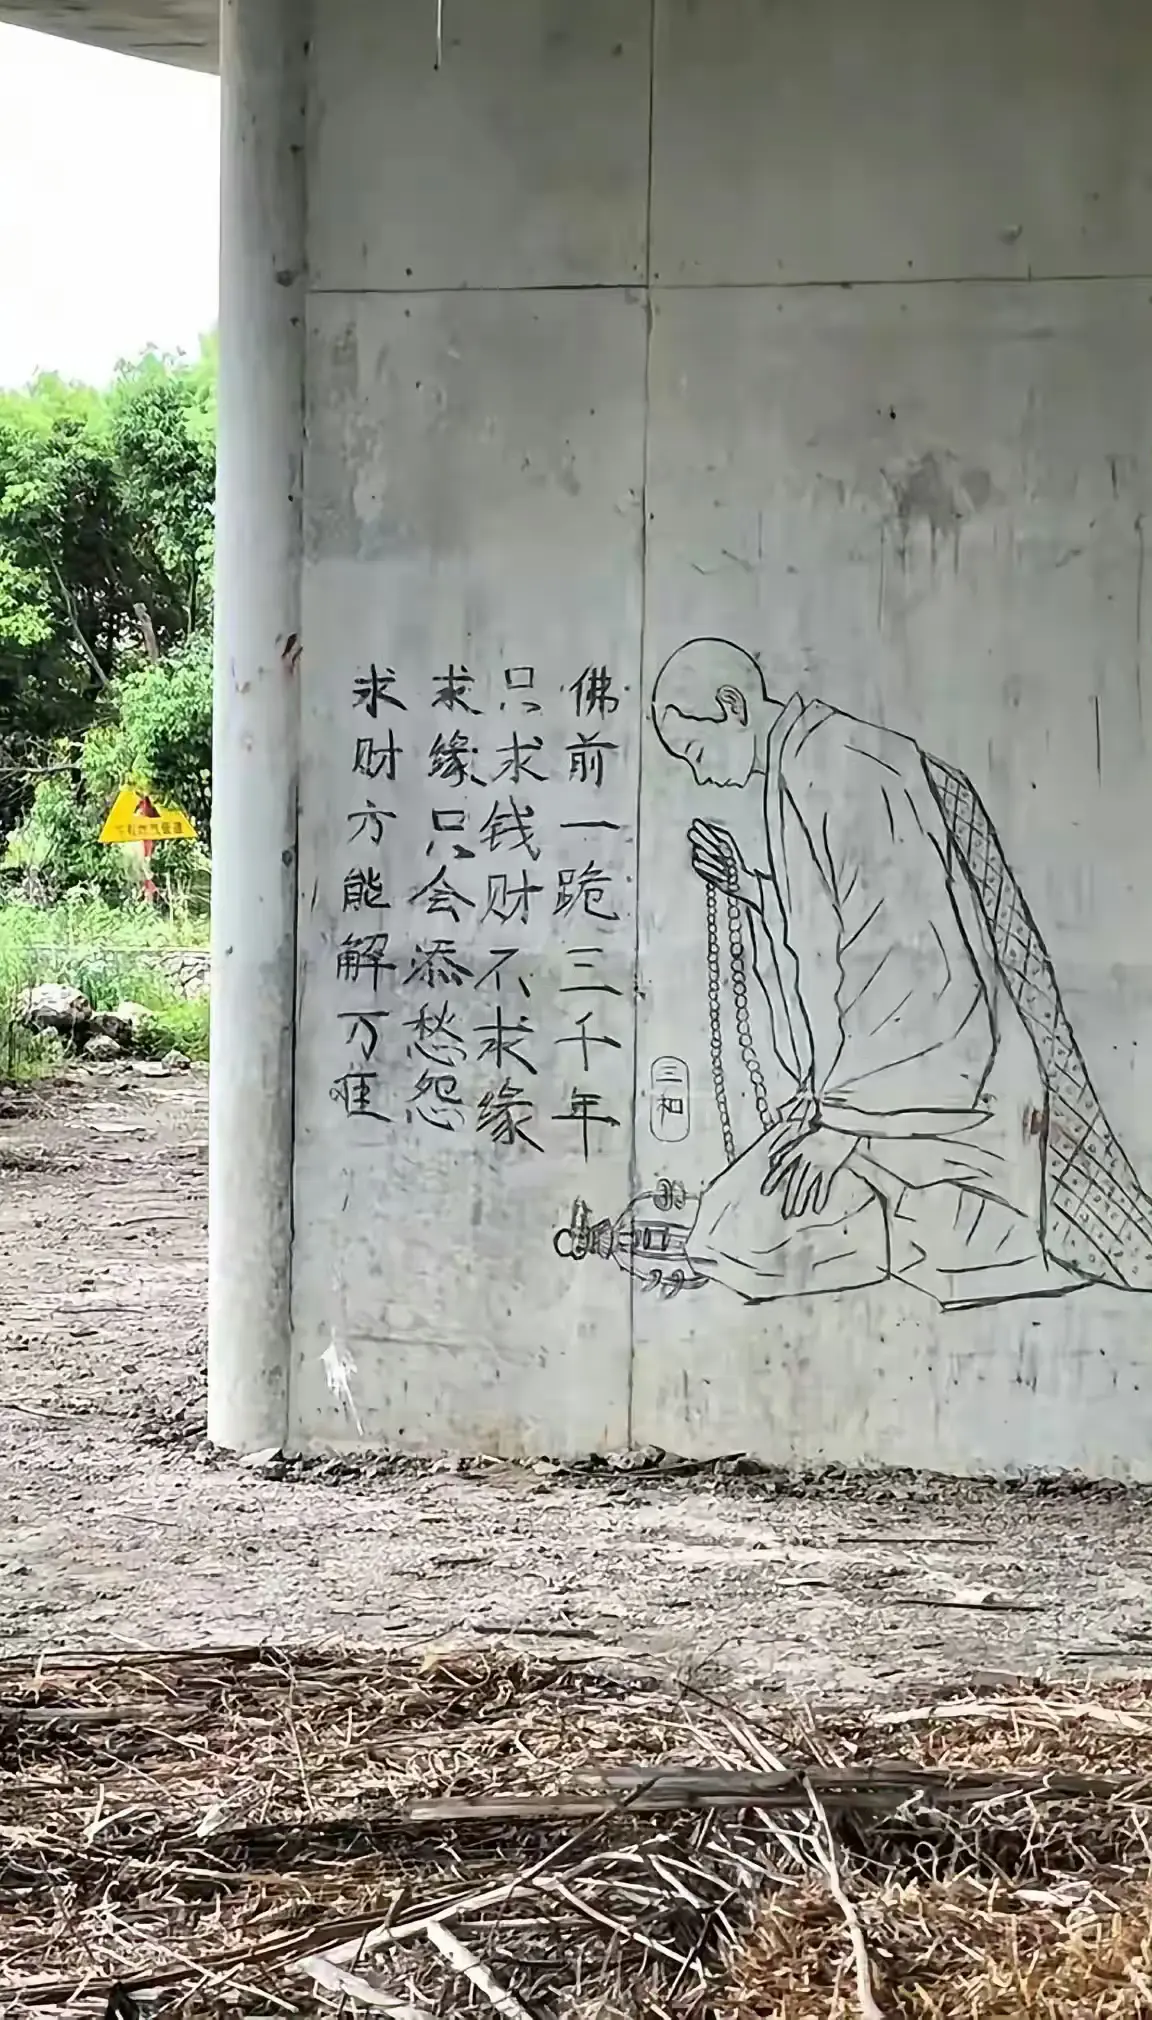 佛前一跪三千年
只求钱财不求缘
求缘只会添愁怨
求财方能解万
三和